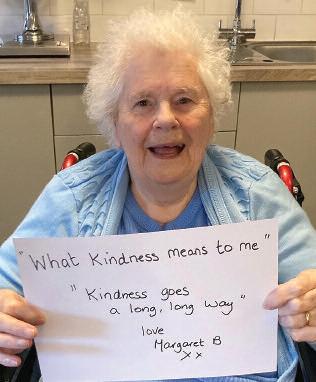 "What Kindness means to me"
"Kindness goes
a long, long way"
love
Margaret B
x x